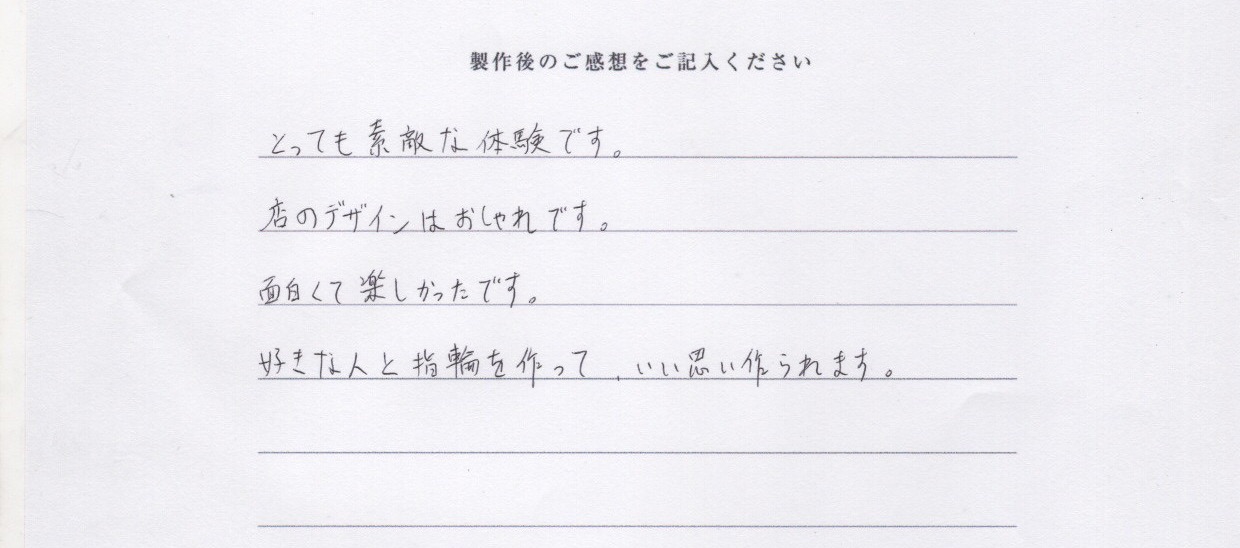 製作後のご感想をご記入ください
とっても素敵な体験です。
店のデザインはおしゃれです。
面白くて楽しかったです。
好きな人と指輪を作って、いい思い作られます。